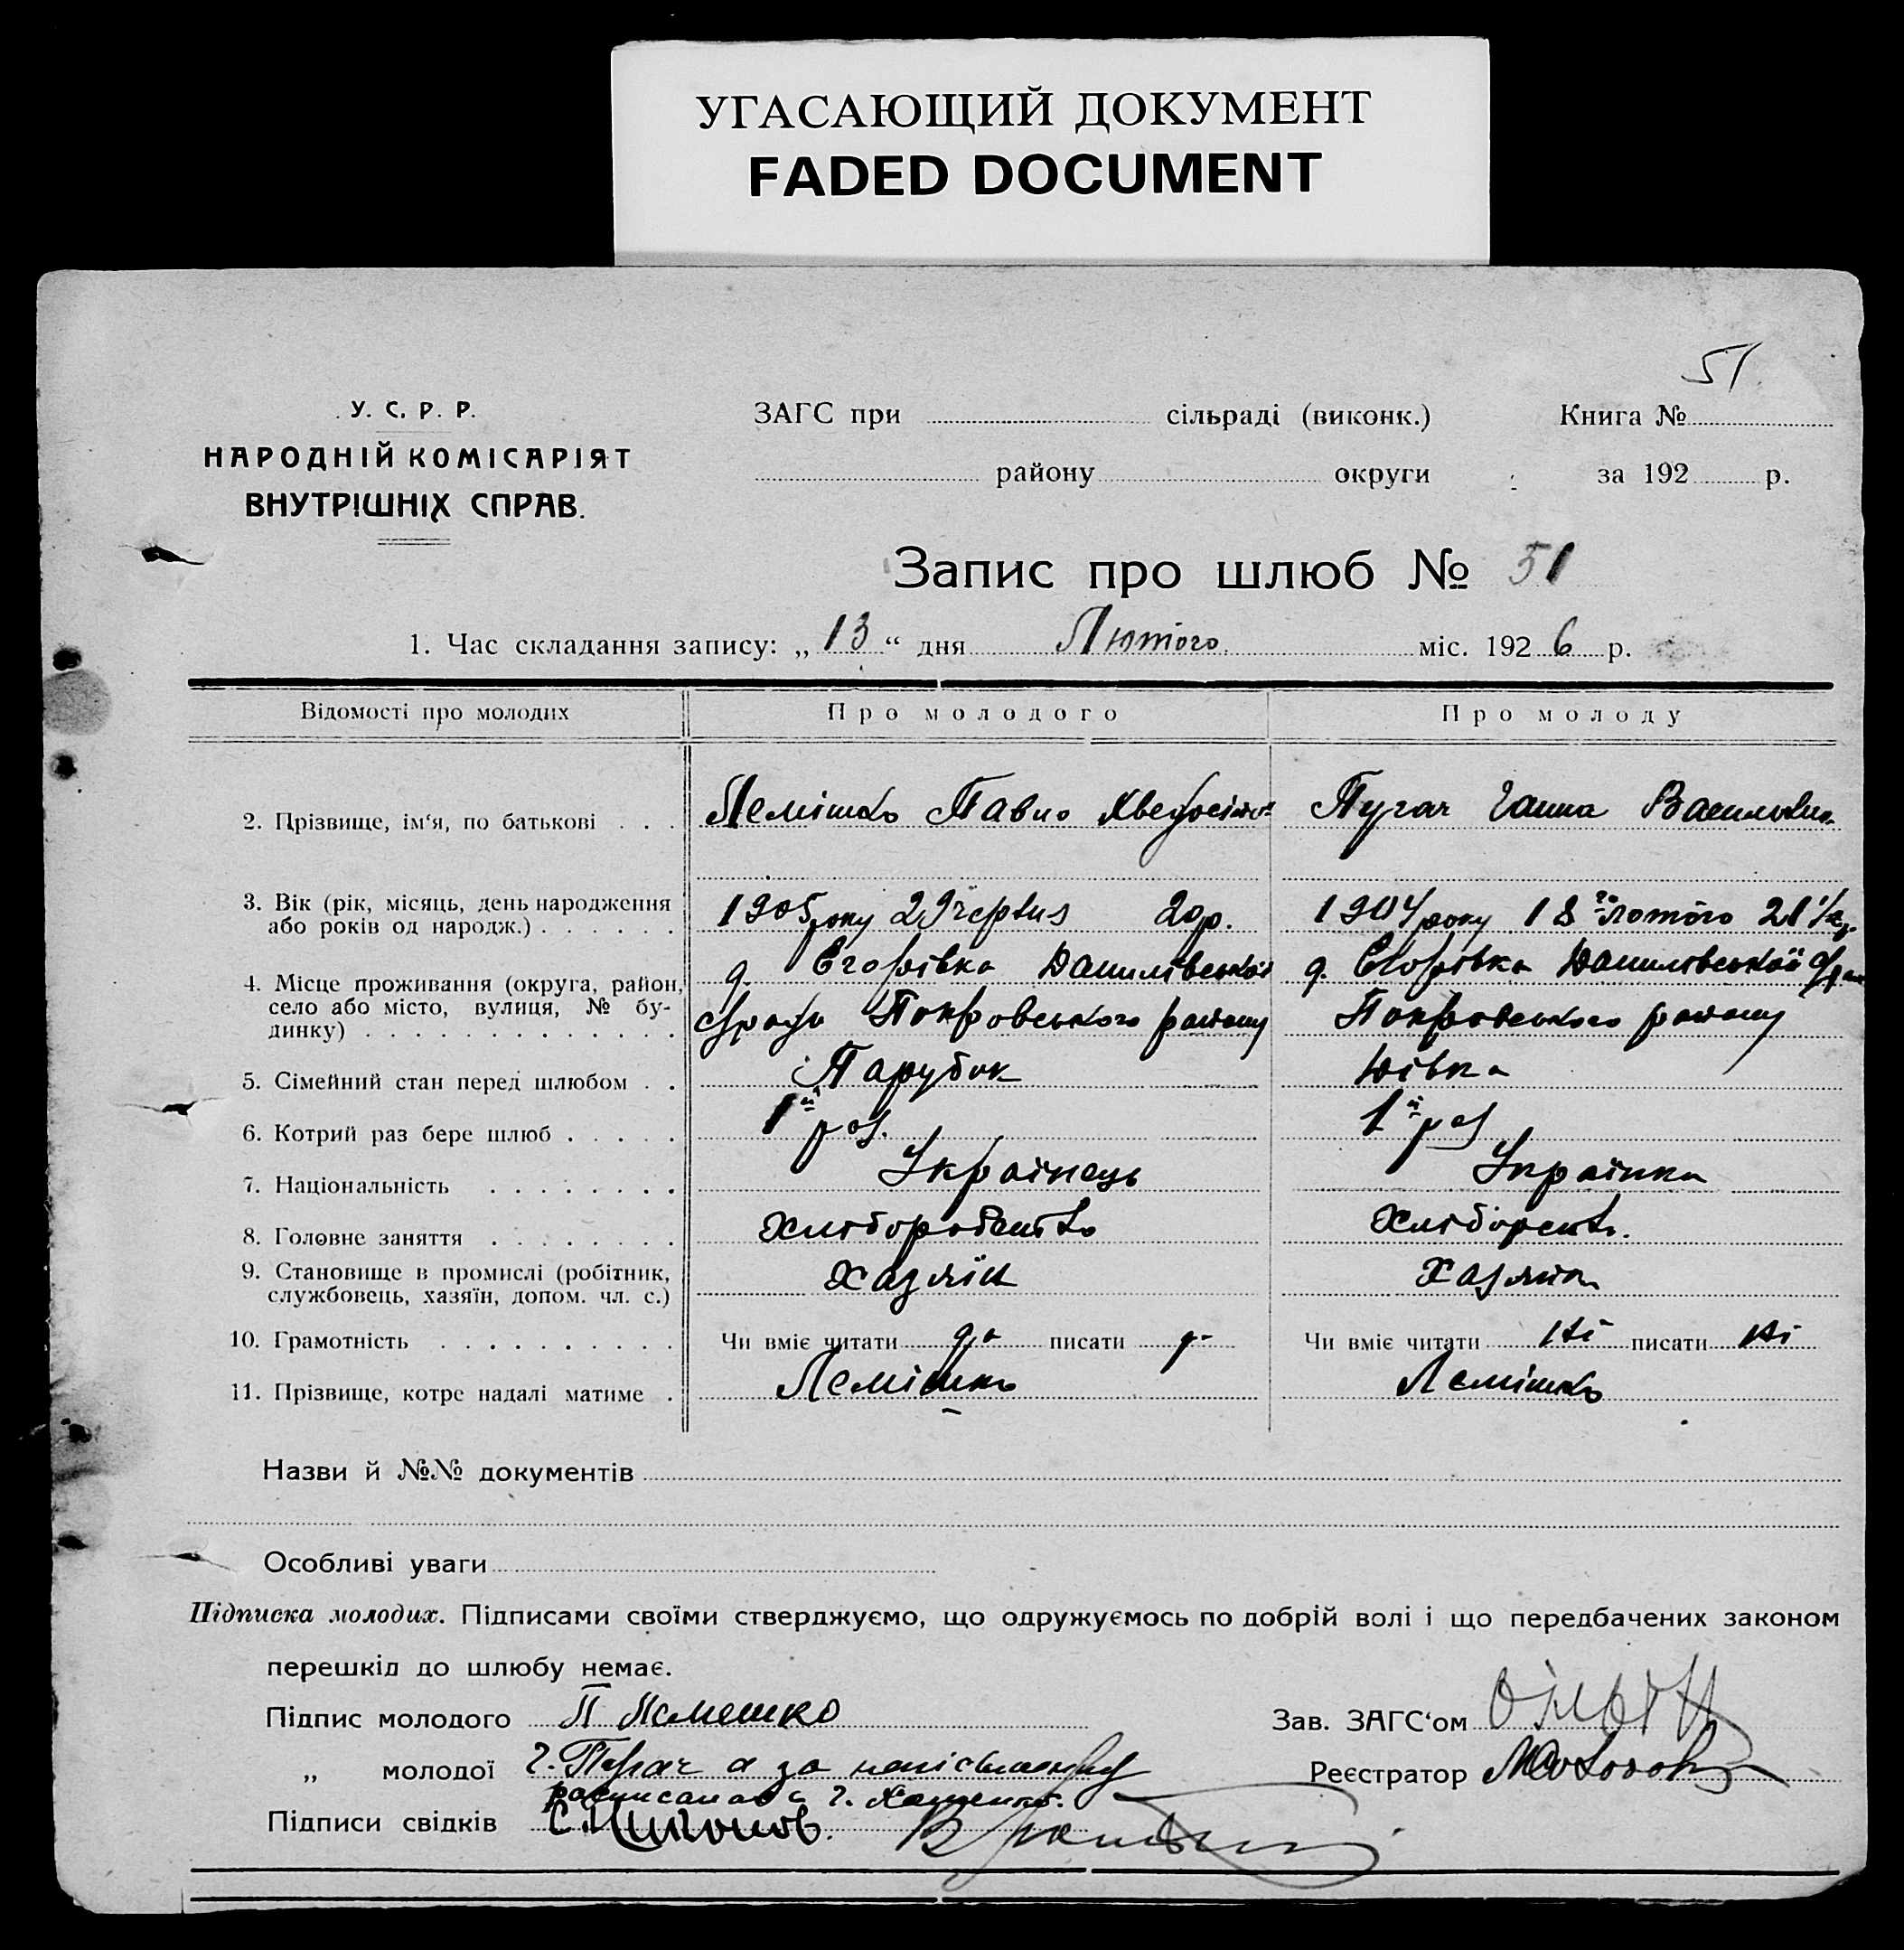 УГАСАЮЩИЙ ДОКУМЕНТ
FADED DOCUMENT
51
У. С. Р. Р.
НАРОДНІЙ КОМІСАРІЯТ
ВНУТРІШНІХ СПРАВ.
ЗАГС при сільраді (виконк.) Книга №
району округи за 192 р.
Запис про шлюб № 51
1. Час складання запису: „ 13 “ дня Лютого міс. 192 6 р.
Відомості про молодих Про молодого Про молоду
2. Прізвище, ім‘я, по батькові Лемішко Павло Пугач Ганна Василівна
3. Вік (рік, місяць, день народження
або років од народж.) 1905 року 29 червня 20 р. 1904 року 18го лютого 21 1/2
4. Місце проживання (округа, район,
село або місто, вулиця, № будинку)
д. Єгорівка Данилівської д. Єгорівка Данилівської
Покровського району Покровського району
5. Сімейний стан перед шлюбом Парубок Дівка
6. Котрий раз бере шлюб 1й раз. 1й раз
7. Національність Українець Українка
8. Головне заняття Хліборобство Хліборобств.
9. Становище в промислі (робітник,
службовець, хазяїн, допом. чл. с.) Хазяїн Хазяйка
10. Грамотність Чи вміє читати да писати д- Чи вміє читати ні писати ні
11. Прізвище, котре надалі матиме Лемішко Лемішко
Назви й №№ документів
Особливі уваги
Підписка молодих. Підписами своїми стверджуємо, що одружуємось по добрій волі і що передбачених законом
перешкід до шлюбу немає.
Підпис молодого П Лемешко Зав. ЗАГС‘ом
„ молодої Г. Пугач а за Реєстратор
Г.
Підписи свідків С.